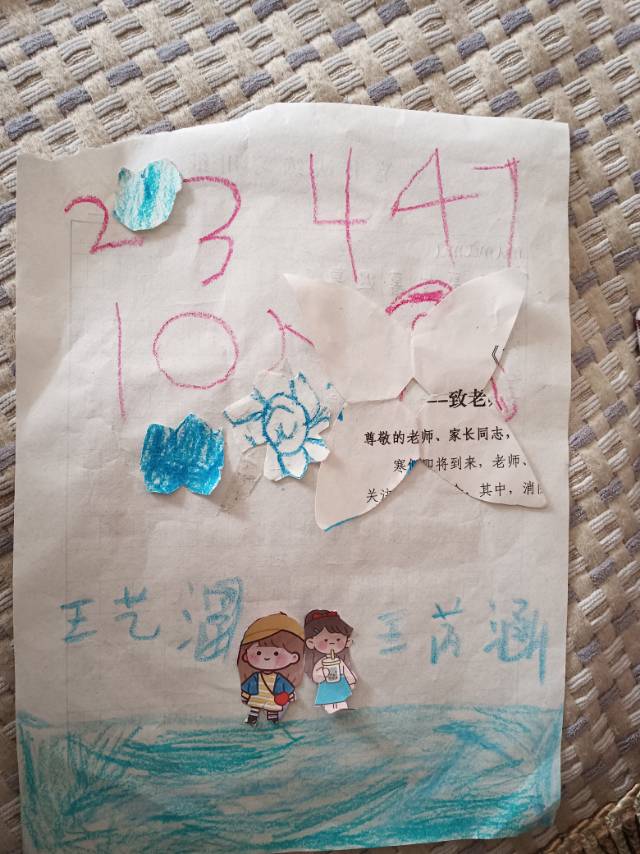 2 3 4 4 7
10
--致老
尊敬的老师、家长同志,
寒假即将到来,老师、
关注 其中,消
王艺涵 王芮涵